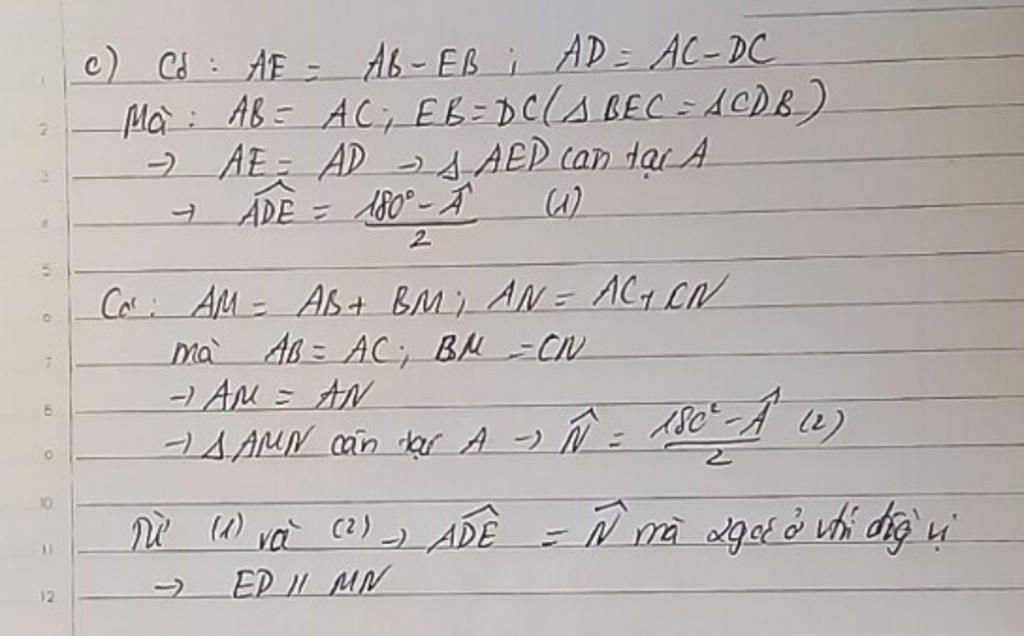 c) Có : AE = AB - EB ; AD = AC - DC
Mà : AB = AC ; EB = DC ( Δ BEC = Δ CDB )
→ AE = AD → Δ AED cân tại A
→ \widehat{ADE} = \frac{180° - \widehat{A}}{2} (1)
Có : AM = AB + BM ; AN = AC + CN
mà AB = AC ; BM = CN
→ AM = AN
→ Δ AMN cân tại A → \widehat{N} = \frac{180° - \widehat{A}}{2} (2)
Từ (1) và (2) → \widehat{ADE} = \widehat{N} mà 2 góc ở vị trí đồng vị
→ ED // MN
1
2
3
4
5
6
7
8
9
10
11
12